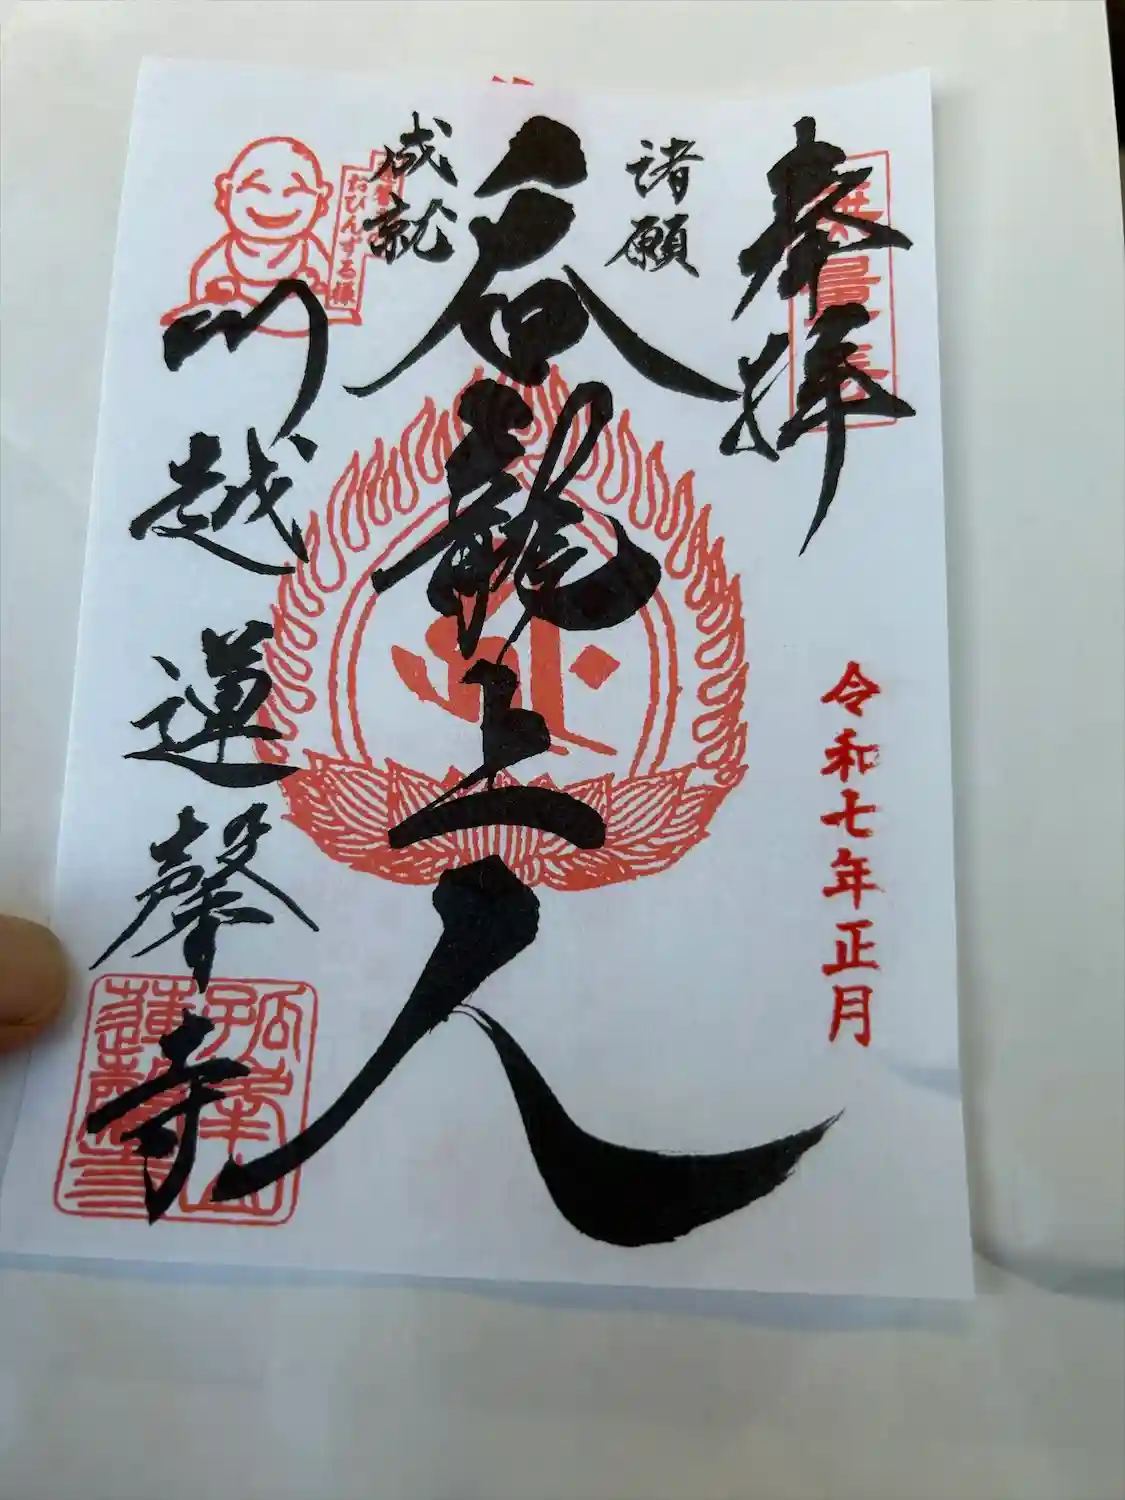 奉拝
令和七年正月
諸願
呑龍上人
成就
おびんずる様
川越蓮馨寺